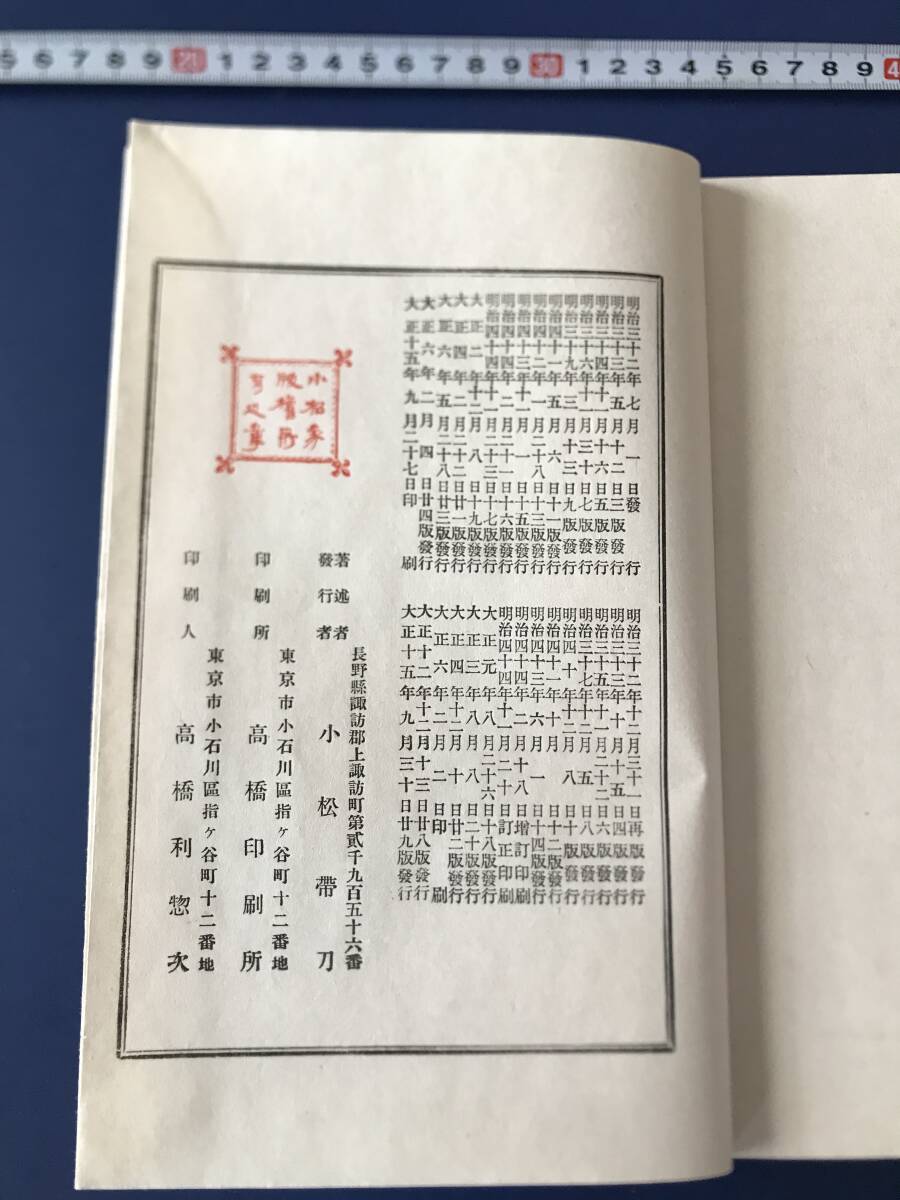 明治三十二年七月一日發行
明治三十二年十二月三十一日再版發行
明治三十三年五月十二日三版發行
明治三十三年十月十五日四版發行
明治三十四年十一月十六日五版發行
明治三十五年十一月二十二日六版發行
明治三十六年十一月三十日七版發行
明治三十七年十二月五日八版發行
明治三十九年三月十三日九版發行
明治四十年十二月八日十版發行
明治四十一年五月六日十一版發行
明治四十一年十月日十二版發行
明治四十二年一月二十八日十三版發行
明治四十三年六月一日十四版發行
明治四十三年十一月一日十五版發行
明治四十四年二月十八日增訂印刷
明治四十四年二月二十一日十六版發行
明治四十四年十一月二十日訂正印刷
明治四十四年十一月二十三日十七版發行
大正元年八月二十六日十八版發行
大正二年十二月八日十九版發行
大正三年八月八日二十版發行
大正四年二月二十二日廿一版發行
大正四年十二月十日廿二版發行
大正六年五月二十八日廿三版發行
大正六年二月二日印刷
大正六年二月四日廿四版發行
大正十二年十二月十三日廿八版發行
大正十五年九月二十七日印刷
大正十五年九月三十日廿九版發行
長野縣諏訪郡上諏訪町第貳千九百五十六番
著述者
發行者 小松帶刀
東京市小石川區指ヶ谷町十二番地
印刷所 高橋印刷所
東京市小石川區指ヶ谷町十二番地
印刷人 高橋利惣次
小松家
版權所
有之章
5 6 7 8 9 20 1 2 3 4 5 6 7 8 9 30 1 2 3 4 5 6 7 8 9 4